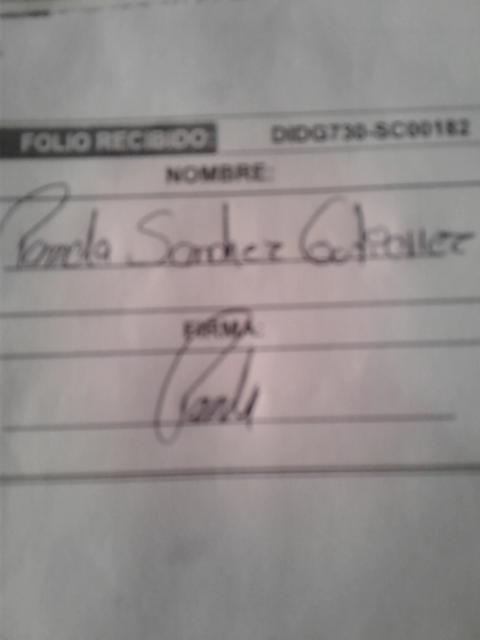 FOLIO RECIBIDO: DIDG730-SC00182
NOMBRE:
Pamela Sanchez Gutierrez
FIRMA: